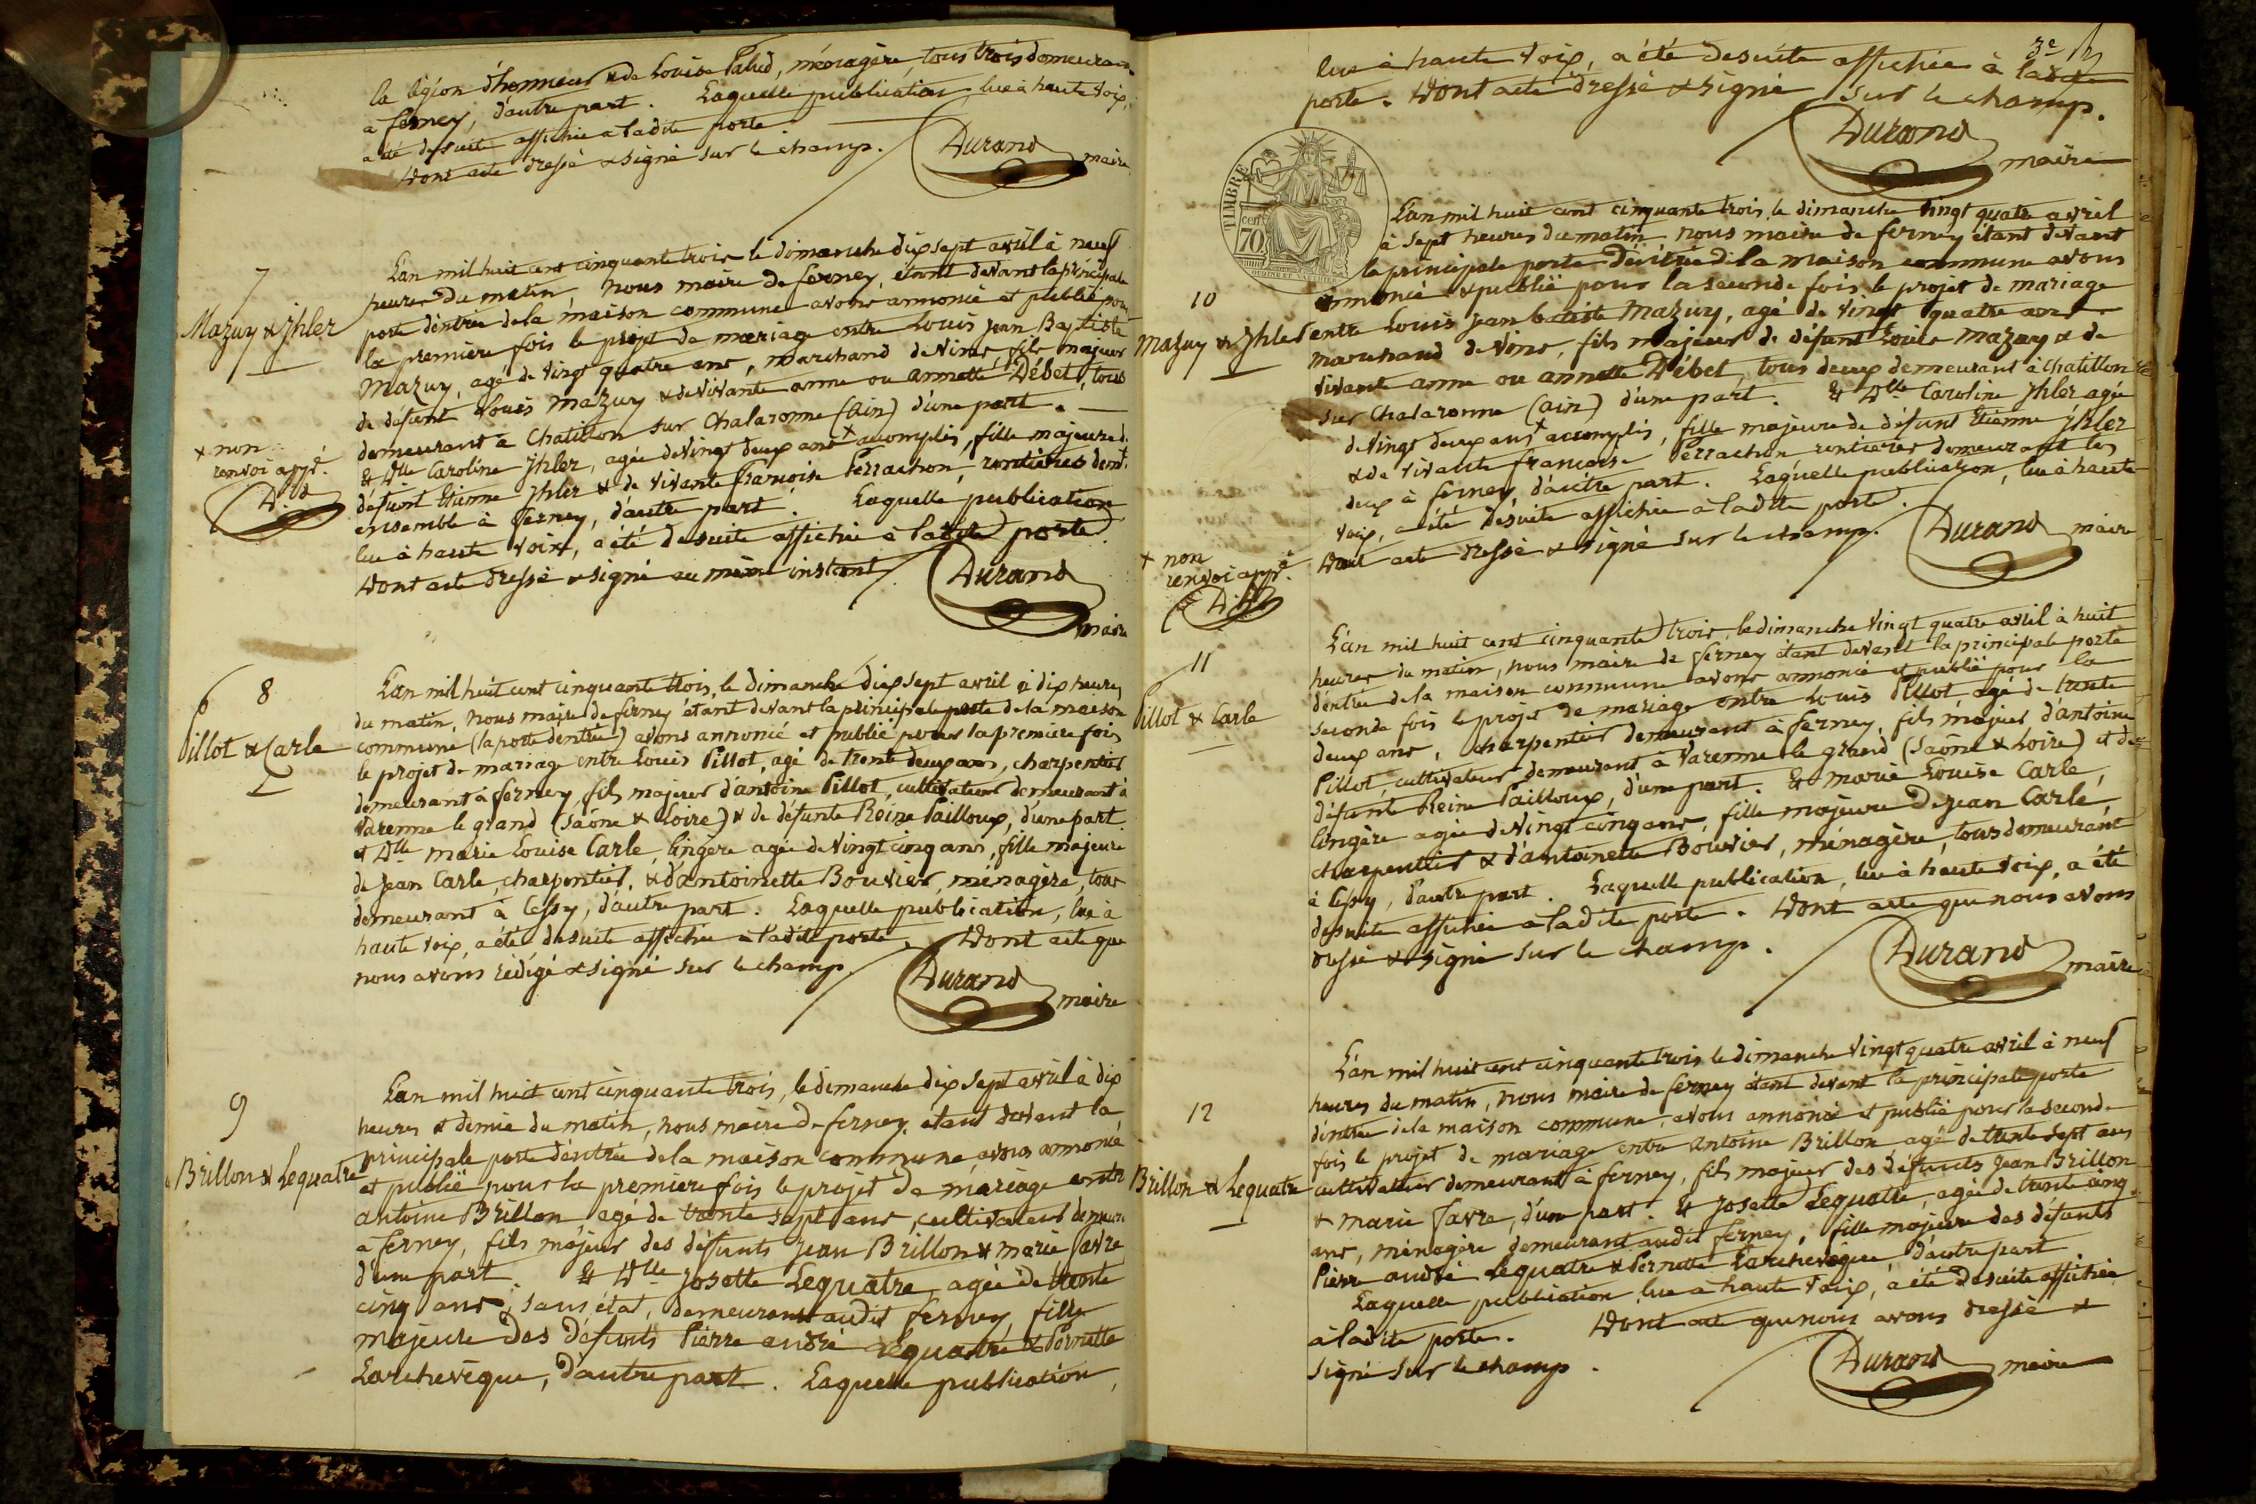 la légion d'honneur & de Louise Palud, ménagère, tous trois demeurans
a ferney, d'autre part. Laquelle publication, lue à haute voix,
a été desuite affichée a ladite porte.
Dont acte dressé & signé sur le champ. Durand maire
7
Mazuy & Jhler
L'an mil huit cent cinquante trois le dimanche dix sept avril à neuf
heures du matin, nous maire de ferney, étant devant la principale
porte d'entrée de la maison commune avons annoncé et publié pour
la première fois le projet de mariage entre Louis Jean Baptiste
Mazuy, agé de vingt quatre ans, marchand de vins, fils majeur
de défunt Louis Mazuy & de vivante anne ou annette Débet, tous
demeurant à Chatillon sur Chalaronne (Ain) d'une part.
& Dlle Caroline Jhler, agée de vingt deux ans + accomplis, fille majeure d.
défunt Etienne Jhler & de vivante françoise Perrachon, rentières demt.
ensemble à ferney, d'autre part. Laquelle publication
lue à haute voix, a été desuite affichée à ladite porte.
Dont acte dressé & signé au même instant Durand
maire
+ non
renvoi appé.
D.d
8
Pillot & Carle
L'an mil huit cent cinquante trois, le dimanche dix sept avril à dix heures
du matin, nous maire de ferney étant devant la principale porte de la maison
commune (la porte d'entrée) avons annoncé et publié pour la première fois
le projet de mariage entre Louis Pillot, agé de trente deux ans, charpentier
demeurant à ferney, fils majeur d'antoine Pillot, cultivateur demeurant à
Varenne le grand (Saône & Loire) & de défunte Reine Pailloux, d'une part.
et Dlle marie Louise Carle, lingère agée de vingt cinq ans, fille majeure
de Jean Carle, charpentier, & d'antoinette Bouvier, ménagère, tous
demeurant à Cessy, d'autre part. Laquelle publication, lue à
haute voix, a été desuite affichée à ladite porte. Dont acte que
nous avons rédigé & signé sur le champ. Durand
maire
9
Brillon & Lequatre
L'an mil huit cent cinquante trois, le dimanche dix sept avril à dix
heures & demie du matin, nous maire de ferney, étant devant la
principale porte d'entrée de la maison commune, avons annoncé
et publié pour la première fois le projet de mariage entre
antoine Brillon, agé de trente sept ans, cultivateur demeur.
a ferney, fils majeur des défunts Jean Brillon & marie favre
d'une part. & Dlle Josette Lequatre, agée de trente
cinq ans, sans état, demeurant audit ferney, fille
majeure des défunts Pierre andré Lequatre & Pernette
Larchevêque, d'autre part. Laquelle publication,
3e
lue à haute voix, a été desuite affichée à ladite
porte. Dont acte dressé & signé sur le champ.
Durand
maire
TIMBRE
cent
70
10
Mazuy & Jhler
L'an mil huit cent cinquante trois, le dimanche vingt quatre avril
à sept heures du matin, nous maire de ferney étant devant
la principale porte d'entrée de la maison commune avons
annoncé & publié pour la seconde fois le projet de mariage
entre Louis jean batiste Mazuy, agé de vingt quatre ans
marchand de vins, fils majeur de défunt Louis Mazuy & de
vivante anne ou annette Débet, tous deux demeurant à Chatillon
sur Chalaronne (ain) d'une part. & Dlle Caroline Jhler agée
de vingt deux ans + accomplis, fille majeure de défunt Etienne Jhler
& de vivante francoise Perrachon rentières demeurant les
deux à ferney, d'autre part. Laquelle publication, lue à haute
voix, a été desuite affichée à ladite porte.
Dont acte dressé & signé sur le champ. Durand maire
+ non
renvoi appé.
D.d
11
Pillot & Carle
L'an mil huit cent cinquante trois, le dimanche vingt quatre avril à huit
heures du matin, nous maire de ferney étant devant la principale porte
d'entrée de la maison commune avons annoncé et publié pour la
seconde fois le projet de mariage entre Louis Pillot, agé de trente
deux ans, charpentier demeurant à ferney, fils majeur d'antoine
Pillot, cultivateur demeurant à Varenne le grand (Saône & Loire) et de
défunte Reine Pailloux, d'une part. & marie Louise Carle,
lingère agée de vingt cinq ans, fille majeure de Jean Carle,
charpentier & d'antoinette Bouvier, ménagère, tous demeurant
à Cessy, d'autre part. Laquelle publication, lue à haute voix, a été
desuite affichée à ladite porte. Dont acte que nous avons
dressé & signé sur le champ. Durand
maire
12
Brillon & Lequatre
L'an mil huit cent cinquante trois le dimanche vingt quatre avril à neuf
heures du matin, nous maire de ferney étant devant la principale porte
d'entrée de la maison commune, avons annoncé et publié pour la seconde
fois le projet de mariage entre antoine Brillon agé de trente sept ans
cultivateur demeurant à ferney, fils majeur des défunts Jean Brillon
& marie favre, d'une part. & Josette Lequatre, agée de trente cinq
ans, ménagère demeurant audit ferney, fille majeure des défunts
Pierre andré Lequatre & Pernette Larchevêque, d'autre part.
Laquelle publication lue à haute voix, a été desuite affichée
à ladite porte. Dont acte que nous avons dressé &
signé sur le champ. Durand maire